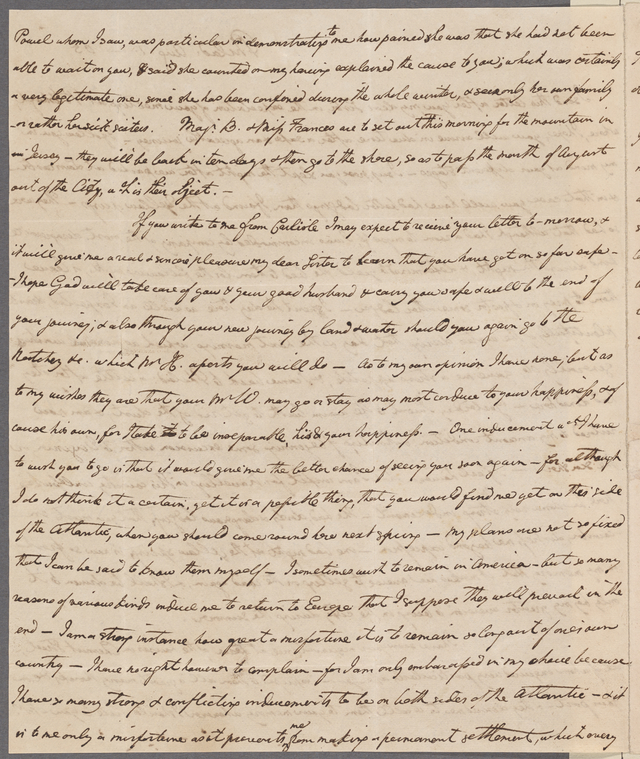 Powel whom I saw, was particular in demonstrating to me how pained she was that she had not been
able to wait on you, & said she counted on my having explained the cause to you; which was certainly
a very legitimate one, since she has been confined during the whole winter, & seen only her own family
– or rather her sick suites. Majr. B. & Miss Frances are to set out this morning for the mountain in
in Jersey – they will be back in ten days & then go to the shore, so as to pass the month of August
out of the City, wh. is their object. –
If you write to me from Carlisle I may expect to receive your letter to-morrow, &
it will give me a real & sincere pleasure my dear Sister to learn that you have got on so far safe –
– I hope God will take care of you & your good husband & carry you safe & well to the end of
your journey; & also through your new journey by land & water should you again go to the
Natchez &c. which Mr. H. asserts you will do – As to my own opinion I have none; but as
to my wishes they are that your Mr W. may go or stay as may most conduce to your happiness, & of
course his own, for I take to be inseparable, his & your happiness. – One inducement wh. I have
to wish you to go is that it would give me the better chance of seeing you soon again – for although
I do not think it a certain, yet it is a possible thing, that you would find me yet on this side
of the Atlantic, when you should come round here next spring – my plans are not so fixed
that I can be said to know them myself – I sometimes wish to remain in America – but so many
reasons of various kinds induce me to return to Europe that I suppose they will prevail in the
end – I am a strong instance how great a misfortune it is to remain so long out of one's own
country – I have no right however to complain – for I am only embarassed in my choice because
I have so many strong & conflicting inducements to be on both sides of the Atlantic – & it
is to me only a misfortune as it prevents me from making a permanent settlement, which every